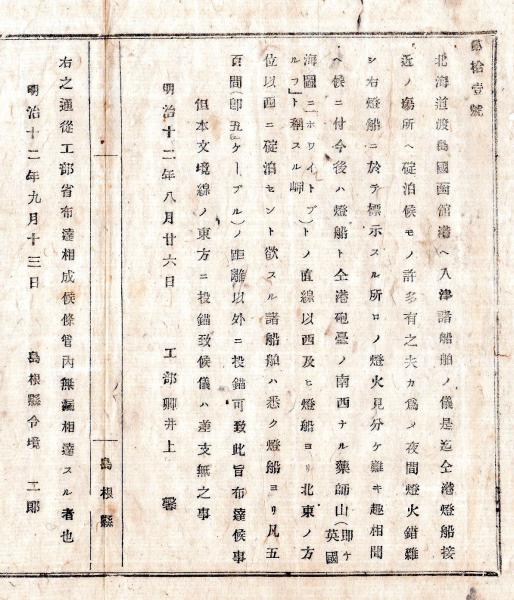 第拾壹號
北海道渡島國函館港ヘ入津諸船舶ノ儀是迄仝港燈船接
近ノ塲所ヘ碇泊候モノ許多有之夫カ爲メ夜間燈火錯雜
シ右燈船ニ於テ標示スル所ロノ燈火見分ケ難キ趣相聞
ヘ候ニ付今後ハ燈船ト仝港砲臺ノ南西ナル藥師山(即ケ英國
海圖ニ「ホワイトブルフ」ト稱スル岬)トノ直線以西及ヒ燈船ヨリ北東ノ方
位以西ニ碇泊セント欲スル諸船舶ハ悉ク燈船ヨリ凡五
百間(即五ケーブル)ノ距離以外ニ投錨可致此旨布達候事
但本文境線ノ東方ニ投錨致候儀ハ差支無之事
明治十二年八月廿六日 工部卿井上 馨
島根縣
右之通從工部省布達相成候條管内無漏相達スル者也
明治十二年九月十三日 島根縣令境 二郎